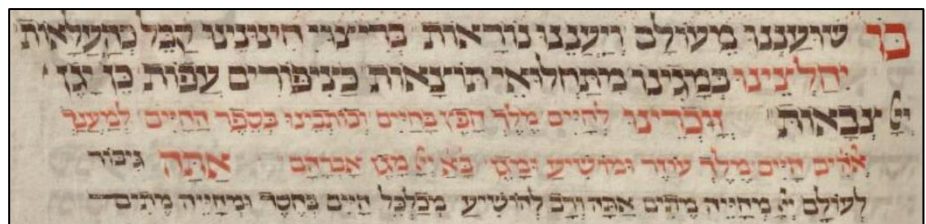 בך שועננו מעולם ויעננו נוראות כריצוי חינונינו קבל כהעלאות
יחלצינו כמגינו מתחלואי תוצאות כציפורים עפות כן יגן
יי צבאות זכרינו לחיים מלך חפץ בחיים וכותבינו בספר החיים למענך
אלהים חיים מלך עוזר ומושיע ומגן בא יי מגן אברהם אתה גיבור
לעולם יי מחייה מתים אתה ורב להושיע מכלכל חיים בחסד ומחייה מתים